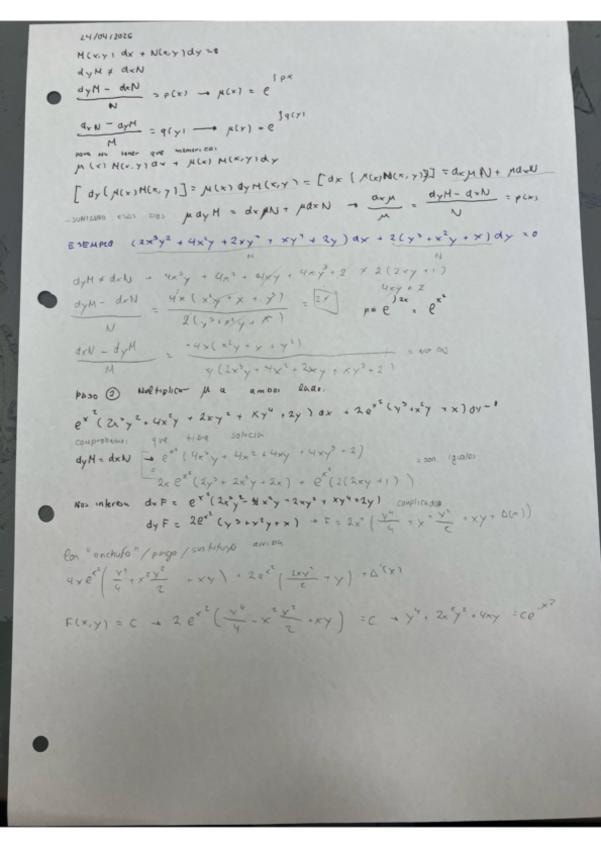 24/04/2026
M(x,y) dx + N(x,y) dy = 0
dyM ≠ dxN
(dyM - dxN)/N = p(x) → μ(x) = e^∫px
(dxN - dyM)/M = q(y) → μ(y) = e^∫q(y)
para no tener que memorizar
μ(x) M(x,y) dx + μ(x) N(x,y) dy
[dy(μ(x)M(x,y)] = μ(x) dyM(x,y) = [dx(μ(x)N(x,y))] = dxμN + μdxN
μdyM = dxμN + μdxN → dxμ/μ = (dyM - dxN)/N = p(x)
EJEMPLO (2x³y² + 4x²y + 2xy² + xy⁴ + 2y) dx + 2(y³ + x²y + x) dy = 0
M N
dyM ≠ dxN → 4x³y + 4x² + 4xy + 4xy³ + 2 ≠ 2(2xy + 1)
4xy + 2
(dyM - dxN)/N = 4x(x²y + x + y³)/2(y³ + x²y + x) = 2x μ = e^∫2x = e^x²
(dxN - dyM)/M = -4x(x²y + x + y³)/y(2x³y + 4x² + 2xy + xy³ + 2) = no
PASO ② Multiplicar μ a ambos lados
e^x²(2x³y² + 4x²y + 2xy² + xy⁴ + 2y) dx + 2e^x²(y³ + x²y + x) dy = 0
comprobamos que tiene solución
dyM = dxN → e^x²(4x³y + 4x² + 4xy + 4xy³ + 2)
= = son iguales
2x e^x²(2y³ + 2x²y + 2x) + e^x²(2(2xy + 1))
Nos interesa dxF = e^x²(2x³y² + 4x²y + 2xy² + xy⁴ + 2y) complicado
dyF = 2e^x²(y³ + x²y + x) → F = 2e^x²(y⁴/4 + x² y²/2 + xy + Δ(x))
Lo "enchufo" / pongo / sustituyo arriba
4xe^x²(y⁴/4 + x²y²/2 + xy) + 2e^x²(2xy²/2 + y) + Δ'(x)
F(x,y) = C → 2e^x²(y⁴/4 + x² y²/2 + xy) = C → y⁴ + 2x²y² + 4xy = Ce^-x²